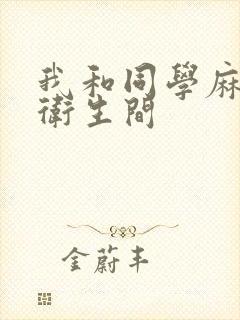 我和同學麻
衛生間
金蔚丰